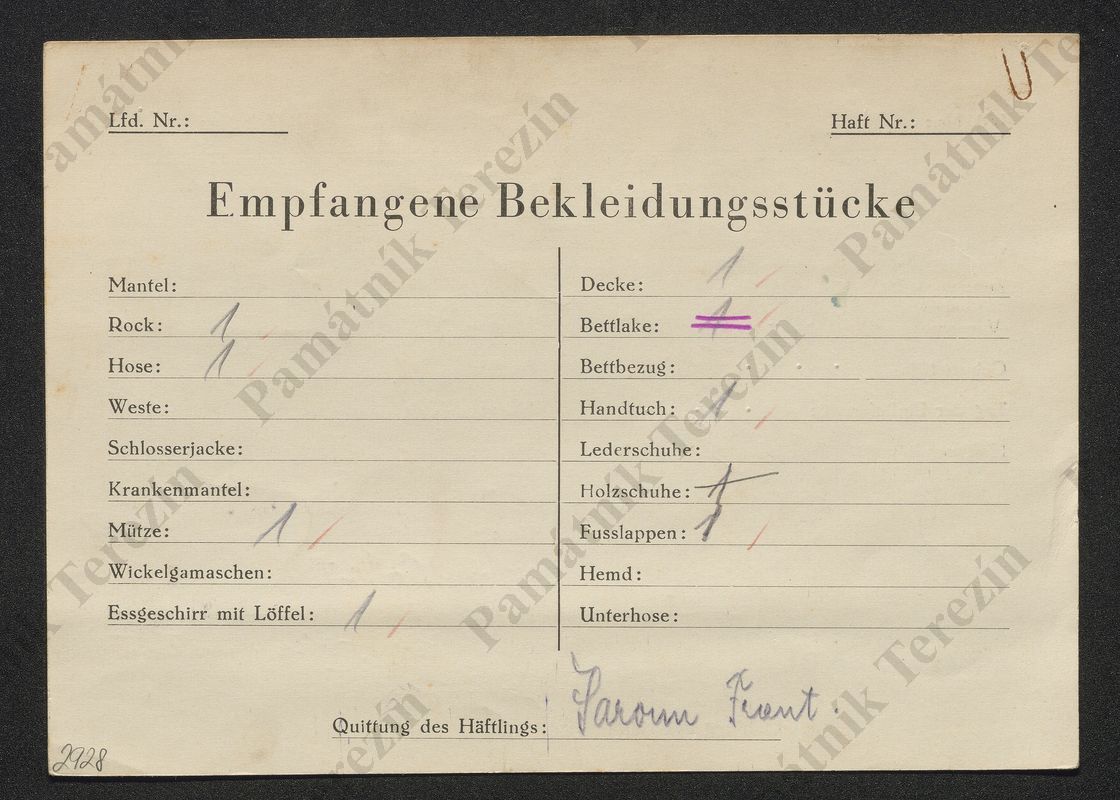 U
Lfd. Nr.:
Haft Nr.:
Empfangene Bekleidungsstücke
Mantel:
Rock: 1
Hose: 1
Weste:
Schlosserjacke:
Krankenmantel:
Mütze: 1
Wickelgamaschen:
Essgeschirr mit Löffel: 1
Decke: 1
Bettlake: 1
Bettbezug:
Handtuch: 1
Lederschuhe:
Holzschuhe: 1
Fusslappen: 1
Hemd:
Unterhose:
Quittung des Häftlings:
2928
Památník Terezín